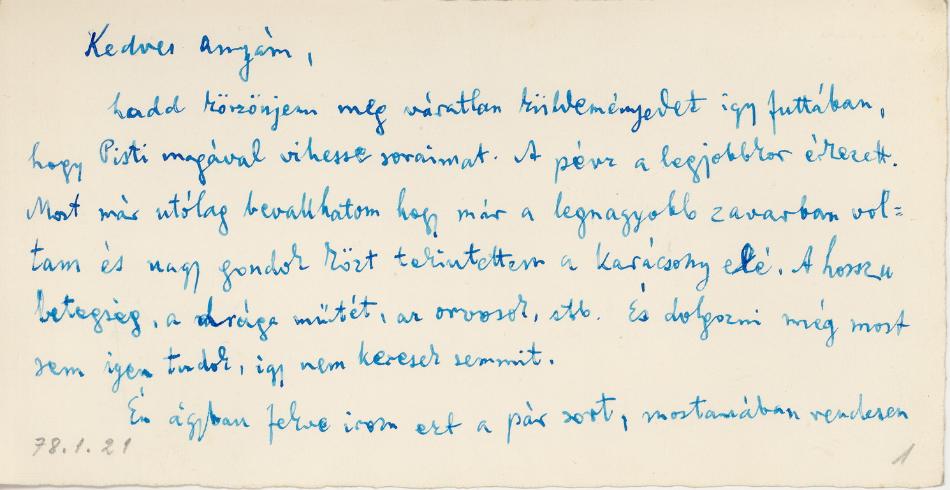 Kedves anyám,
hadd köszönjem meg váratlan küldeményedet igy futtában,
hogy Pisti magával vihesse soraimat. A pénz a legjobbkor érkezett.
Most már utólag bevallhatom hogy már a legnagyobb zavarban vol=
tam és nagy gondok közt tekintettem a karácsony elé. A hosszu
betegség, a drága mütét, az orvosok, stb. És dolgozni még most
sem igen tudok, igy nem keresek semmit.
Én ágyban fekve irom ezt a pár sort, mostanában rendesen
78.1.21
1